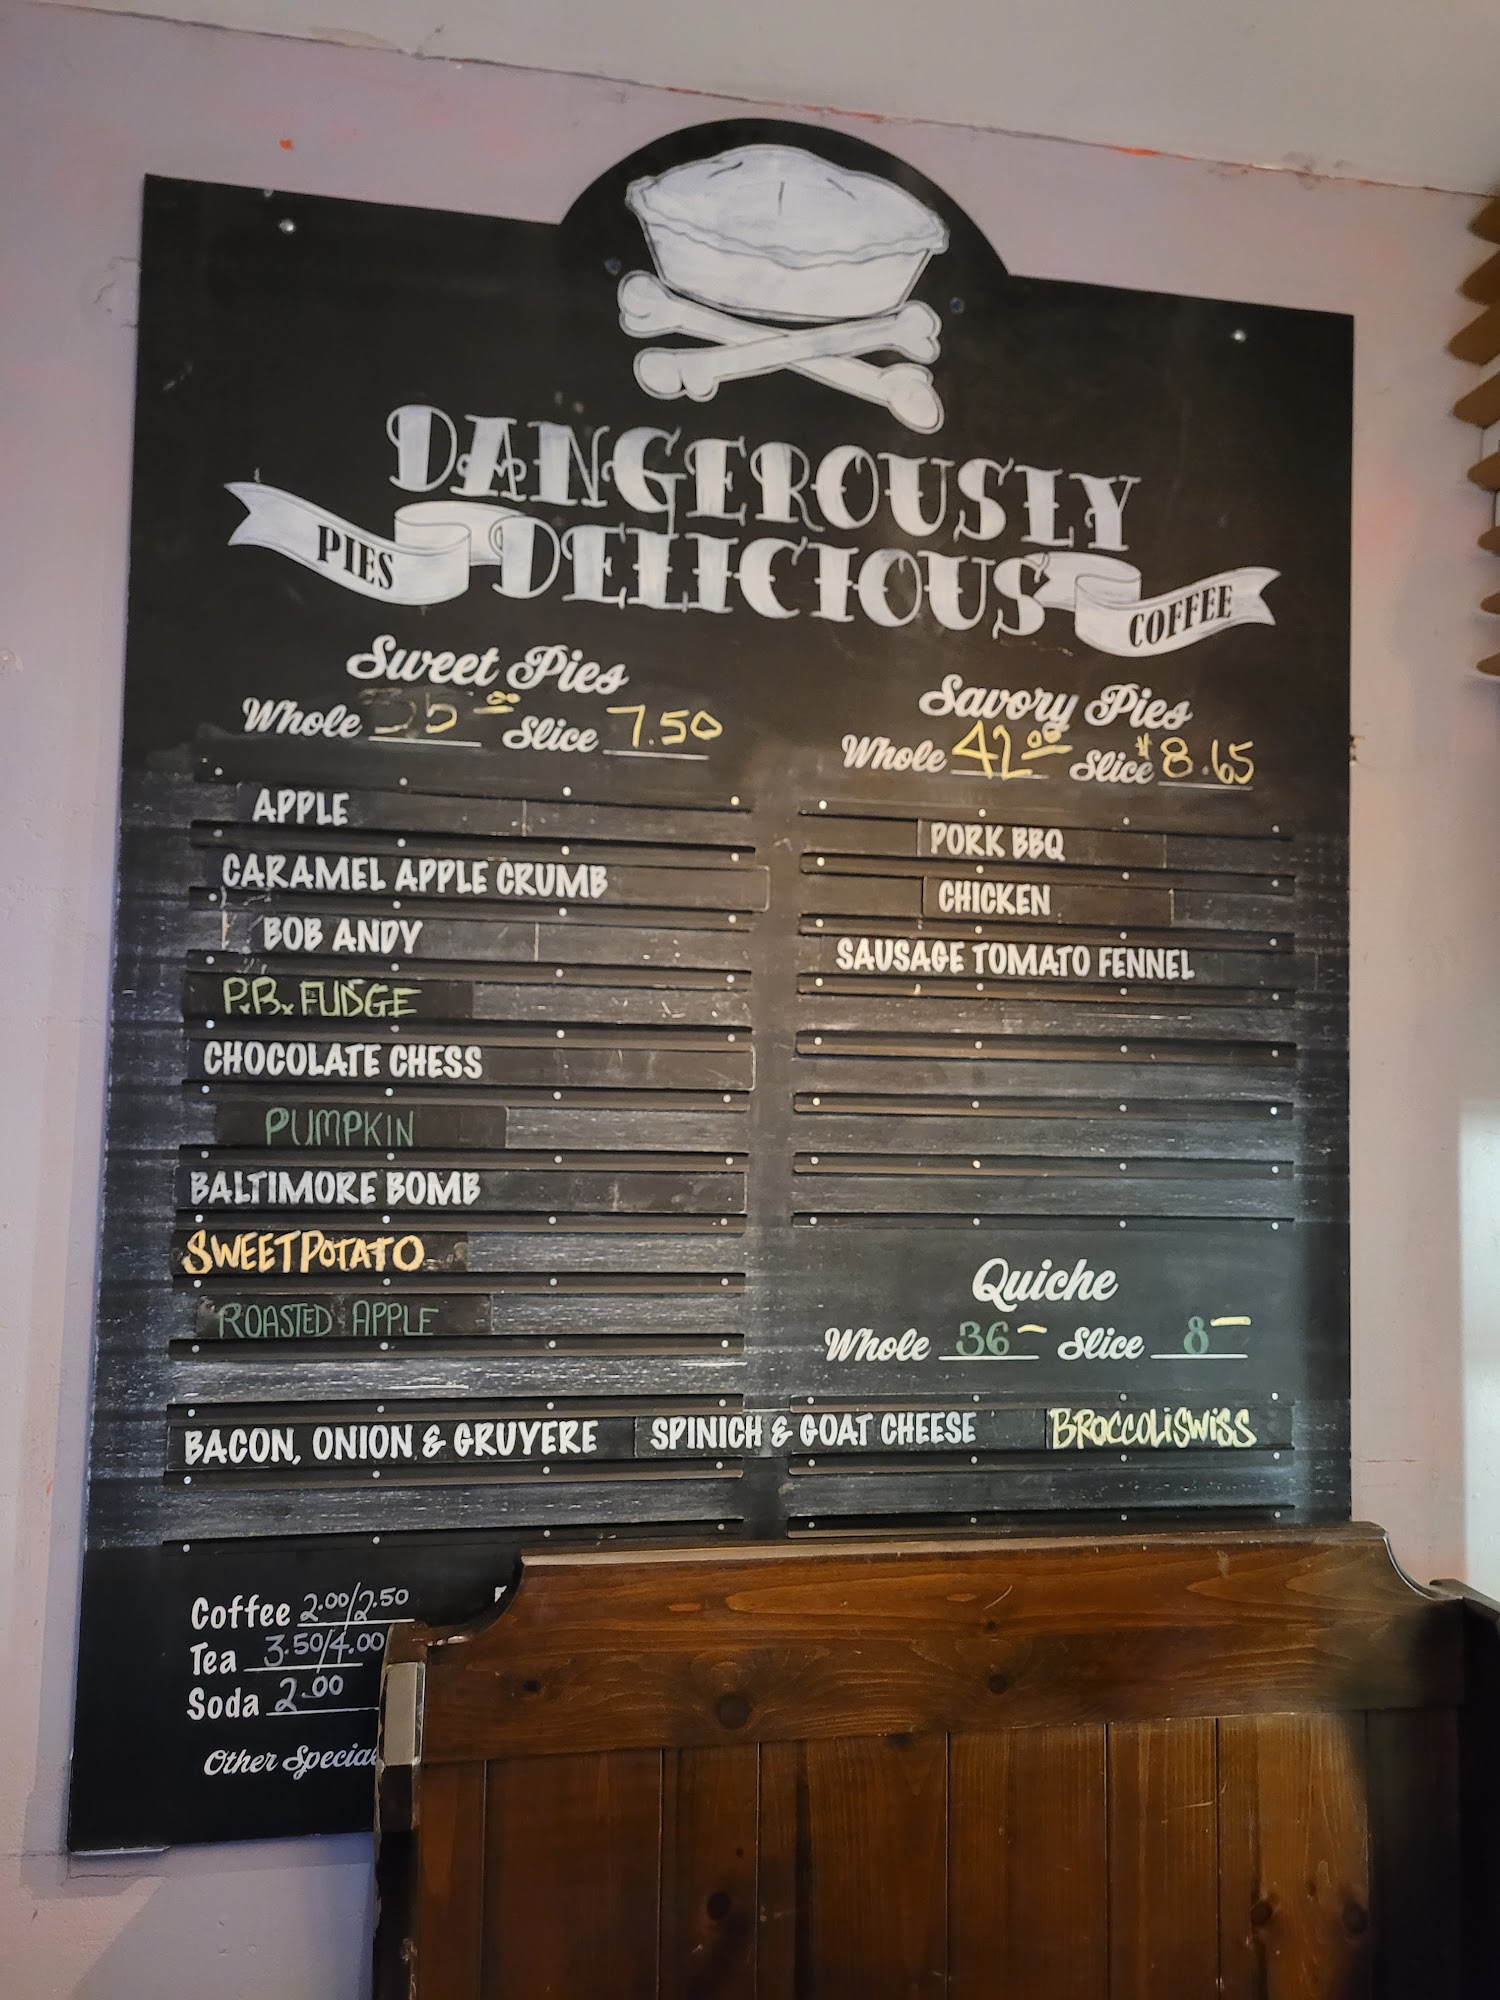 DANGEROUSLY
PIES DELICIOUS COFFEE
Sweet Pies
Whole 35.00 Slice 7.50
APPLE
CARAMEL APPLE CRUMB
BOB ANDY
P.B. FUDGE
CHOCOLATE CHESS
PUMPKIN
BALTIMORE BOMB
SWEET POTATO
ROASTED APPLE
Savory Pies
Whole 42.00 Slice $8.65
PORK BBQ
CHICKEN
SAUSAGE TOMATO FENNEL
Quiche
Whole 36 – Slice 8 –
BACON, ONION & GRUYERE SPINICH & GOAT CHEESE BROCCOLI SWISS
Coffee 2.00/2.50
Tea 3.50/4.00
Soda 2.00
Other Special